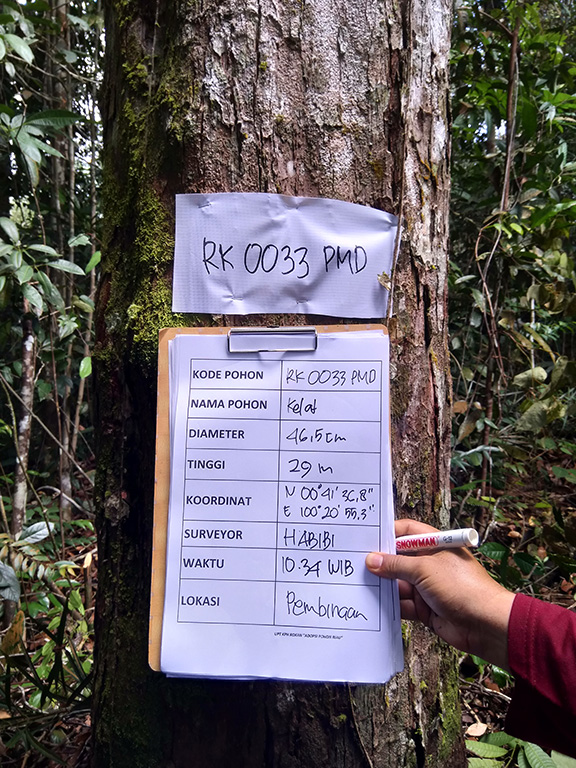 RK 0033 PMD
KODE POHON RK 0033 PMD
NAMA POHON Kelat
DIAMETER 46,5 cm
TINGGI 29 m
KOORDINAT N 00°41' 36,8"
E 100°20' 55.3"
SURVEYOR HABIBI
WAKTU 10.34 WIB
LOKASI Pembinaan
UPT KPH ROKAN "ADOPSI POHON RIAU"
SNOWMAN